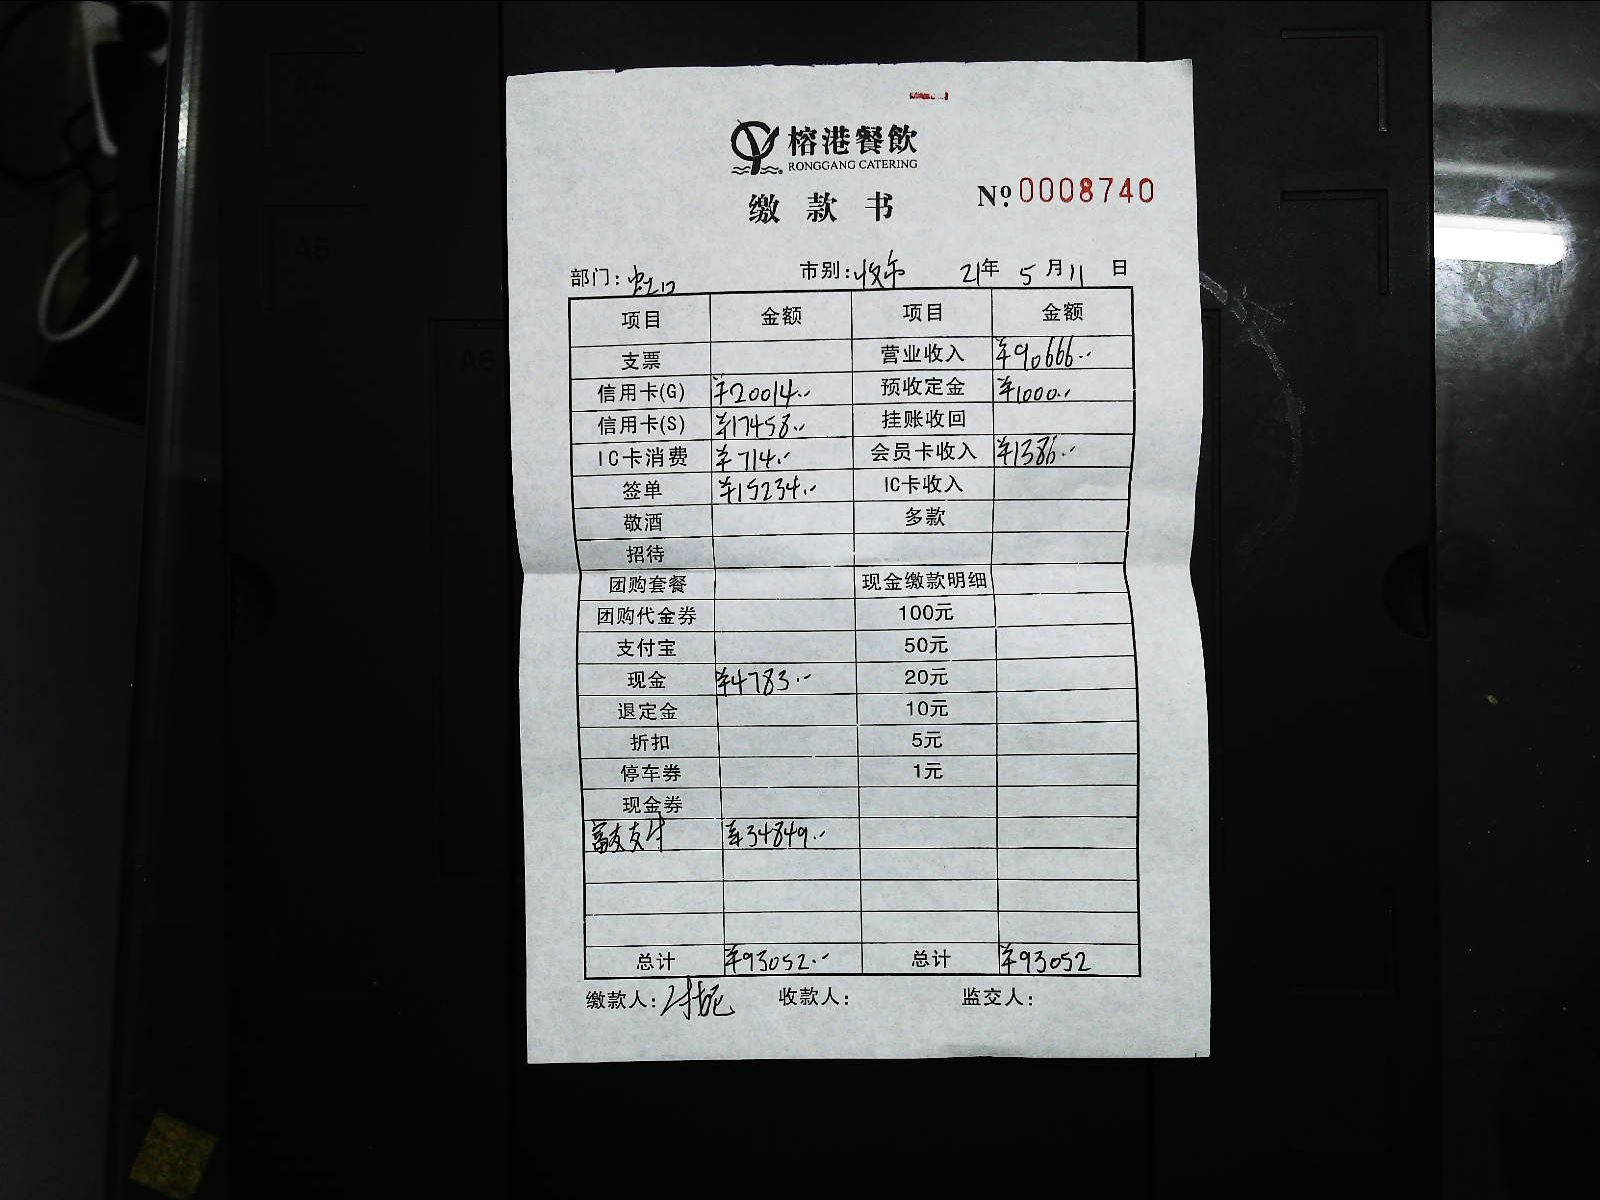 榕港餐飲
RONGGANG CATERING
缴款书
№ 0008740
部门: 虹口 市别: 收市 21年 5月11日
项目 金额 项目 金额
支票 营业收入 ¥90666.--
信用卡(G) ¥20014.-- 预收定金 ¥1000.--
信用卡(S) ¥17458.-- 挂账收回
IC卡消费 ¥714.-- 会员卡收入 ¥1386.--
签单 ¥15234.-- IC卡收入
敬酒 多款
招待
团购套餐 现金缴款明细
团购代金券 100元
支付宝 50元
现金 ¥4783.-- 20元
退定金 10元
折扣 5元
停车券 1元
现金券
富友支付 ¥34849.--
总计 ¥93052.-- 总计 ¥93052
缴款人: 收款人: 监交人: